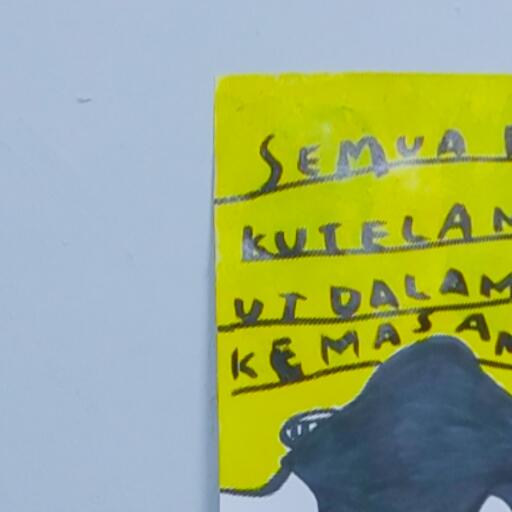 SEMUA
KUTELAN
UT DALAM
KEMASAN